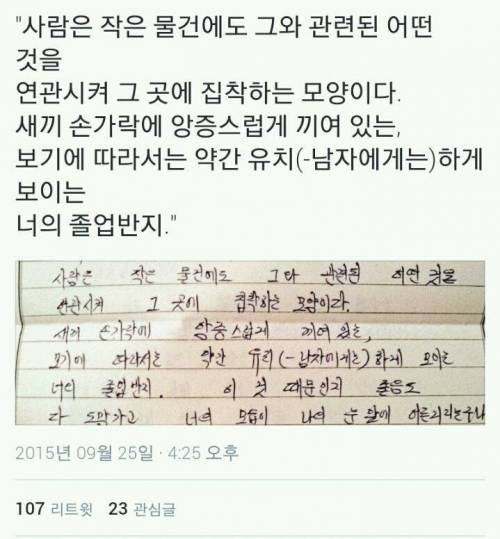 "사람은 작은 물건에도 그와 관련된 어떤
것을
연관시켜 그 곳에 집착하는 모양이다.
새끼 손가락에 앙증스럽게 끼여 있는,
보기에 따라서는 약간 유치(-남자에게는)하게
보이는
너의 졸업반지."
사람은 작은 물건에도 그와 관련된 어떤 것을
연관시켜 그 곳에 집착하는 모양이다.
새끼 손가락에 앙증스럽게 끼여 있는,
보기에 따라서는 약간 유치(-남자에게는)하게 보이는
너의 졸업반지. 이 것 때문인지 졸음도
다 도망가고 너의 모습이 나의 눈 앞에 어른거리는구나
2015년 09월 25일 · 4:25 오후
107 리트윗 23 관심글